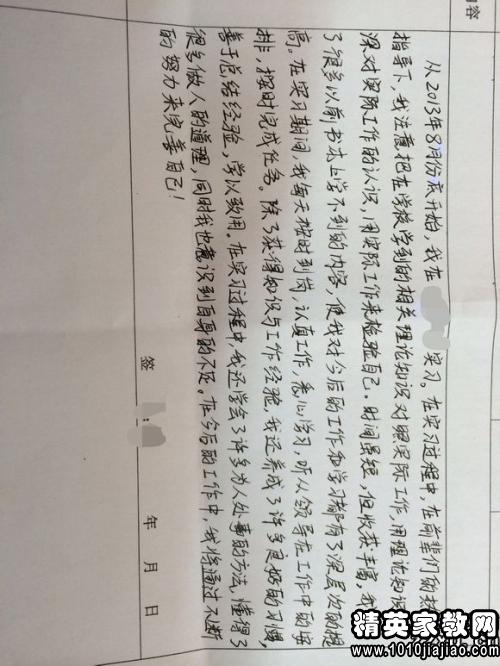 内容
从2013年8月份底开始，我在 实习。在实习过程中，在前辈们的
指导下，我注意把在学校学到的相关理论知识对照实际工作，用理论知识
深对实际工作的认识，用实际工作来检验自己。时间虽短，但收获丰富，我
了很多以前书本上学不到的内容，使我对今后的工作和学习都有了深层次的提
高。在实习期间，我每天按时到岗，认真工作，悉心学习，听从领导在工作中的安
排，按时完成任务。除了获得知识与工作经验，我还养成了许多良好的习惯，
善于总结经验，学以致用。在实习过程中，我还学会了许多为人处事的方法，懂得了
很多做人的道理，同时我也意识到自身的不足。在今后的工作中，我将通过不断
的努力来完善自己！
签 ：
年 月 日
精英家教网
www.1010jiajiao.com